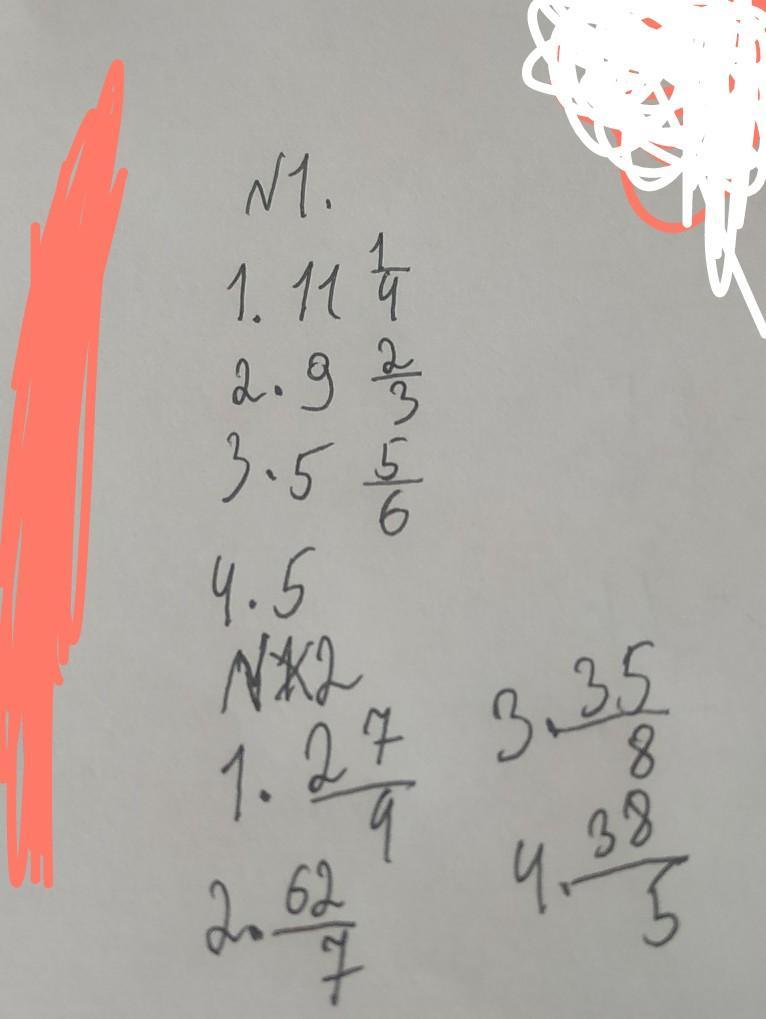 N1.
1. 11 1/4
2. 9 2/3
3. 5 5/6
4. 5
N2
1. 27/4
2. 62/7
3. 35/8
4. 38/5